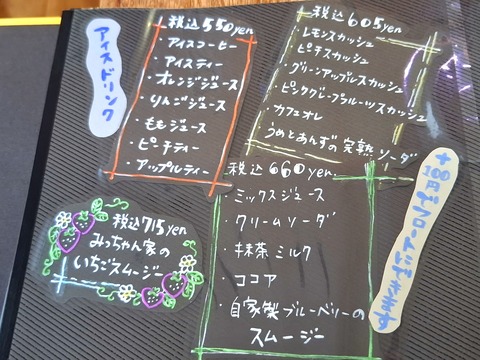 アイスドリンク
税込550yen
・アイスコーヒー
・アイスティー
・オレンジジュース
・りんごジュース
・ももジュース
・ピーチティー
・アップルティー
税込605yen
・レモンスカッシュ
・ピーチスカッシュ
・グリーンアップルスカッシュ
・ピンクグレープフルーツスカッシュ
・カフェオレ
・うめとあんずの完熟ソーダ
税込660yen
・ミックスジュース
・クリームソーダ
・抹茶ミルク
・ココア
・自家製ブルーベリーの
スムージー
税込715yen
みっちゃん家の
いちごスムージー
+100円でフロートにできます